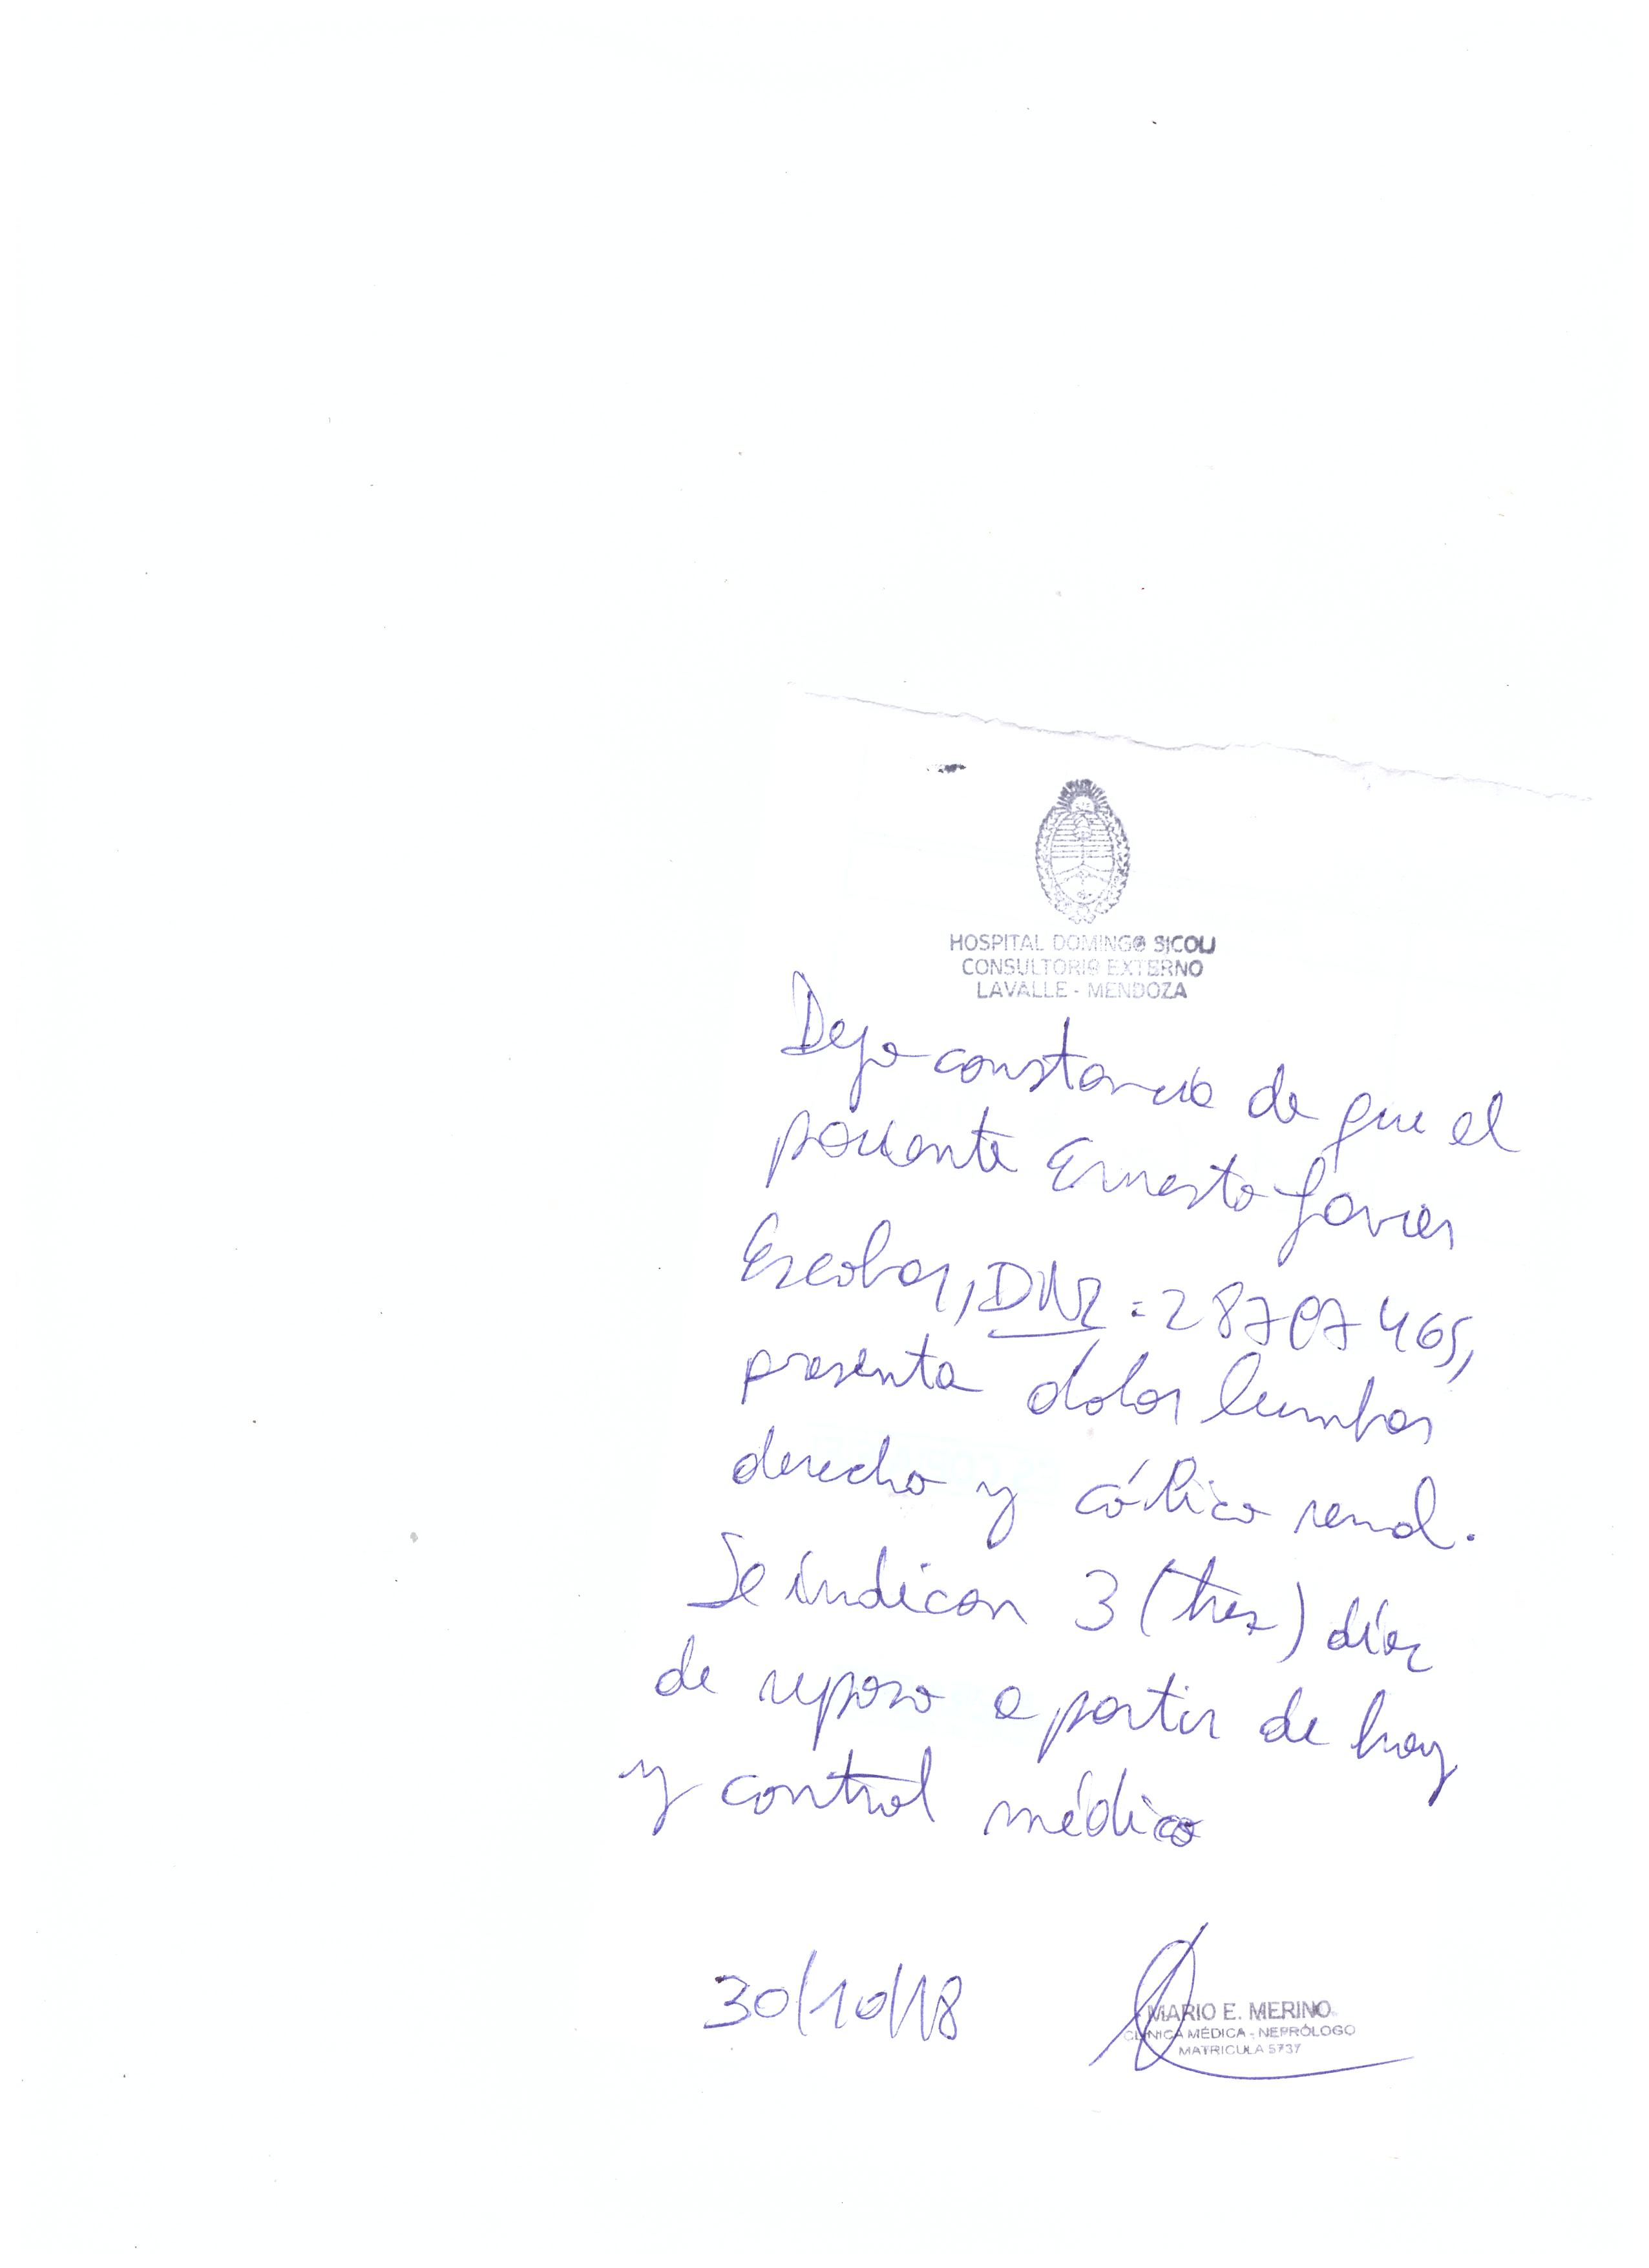 HOSPITAL DOMINGO SICOLI
CONSULTORIO EXTERNO
LAVALLE - MENDOZA
Dejo constancia de que el
paciente Ernesto Javier
Escobar, DNI: 28707465,
presenta dolor lumbar
derecho y cólico renal.
Se indican 3 (tres) días
de reposo a partir de hoy
y control médico
30/10/18
MARIO E. MERINO
CLINICA MÉDICA - NEFRÓLOGO
MATRICULA 5737